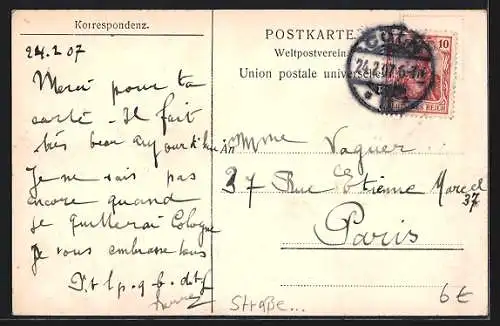 Korrespondenz.
24.2.07
Merci pour ta
carte. Il fait
très beau aujourd'hui
Je ne sais pas
encore quand
je quitterai Cologne
Je vous embrasse tous
POSTKARTE
Weltpostverein
Union postale universelle
24.2.07. 6-7N
10
REICH
Mme Vaguer
37 Rue Etienne Marcel
37
Paris
Straße...
6€